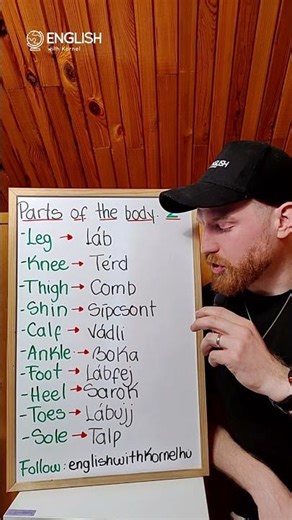 ENGLISH
with Kornel
ENGLISH
Parts of the body. 2
-Leg → Láb
-Knee → Térd
-Thigh → Comb
-Shin → Sípcsont
-Calf → Vádli
-Ankle → Boka
-Foot → Lábfej
-Heel → Sarok
-Toes → Lábujj
-Sole → Talp
Follow: englishwithkornelhu